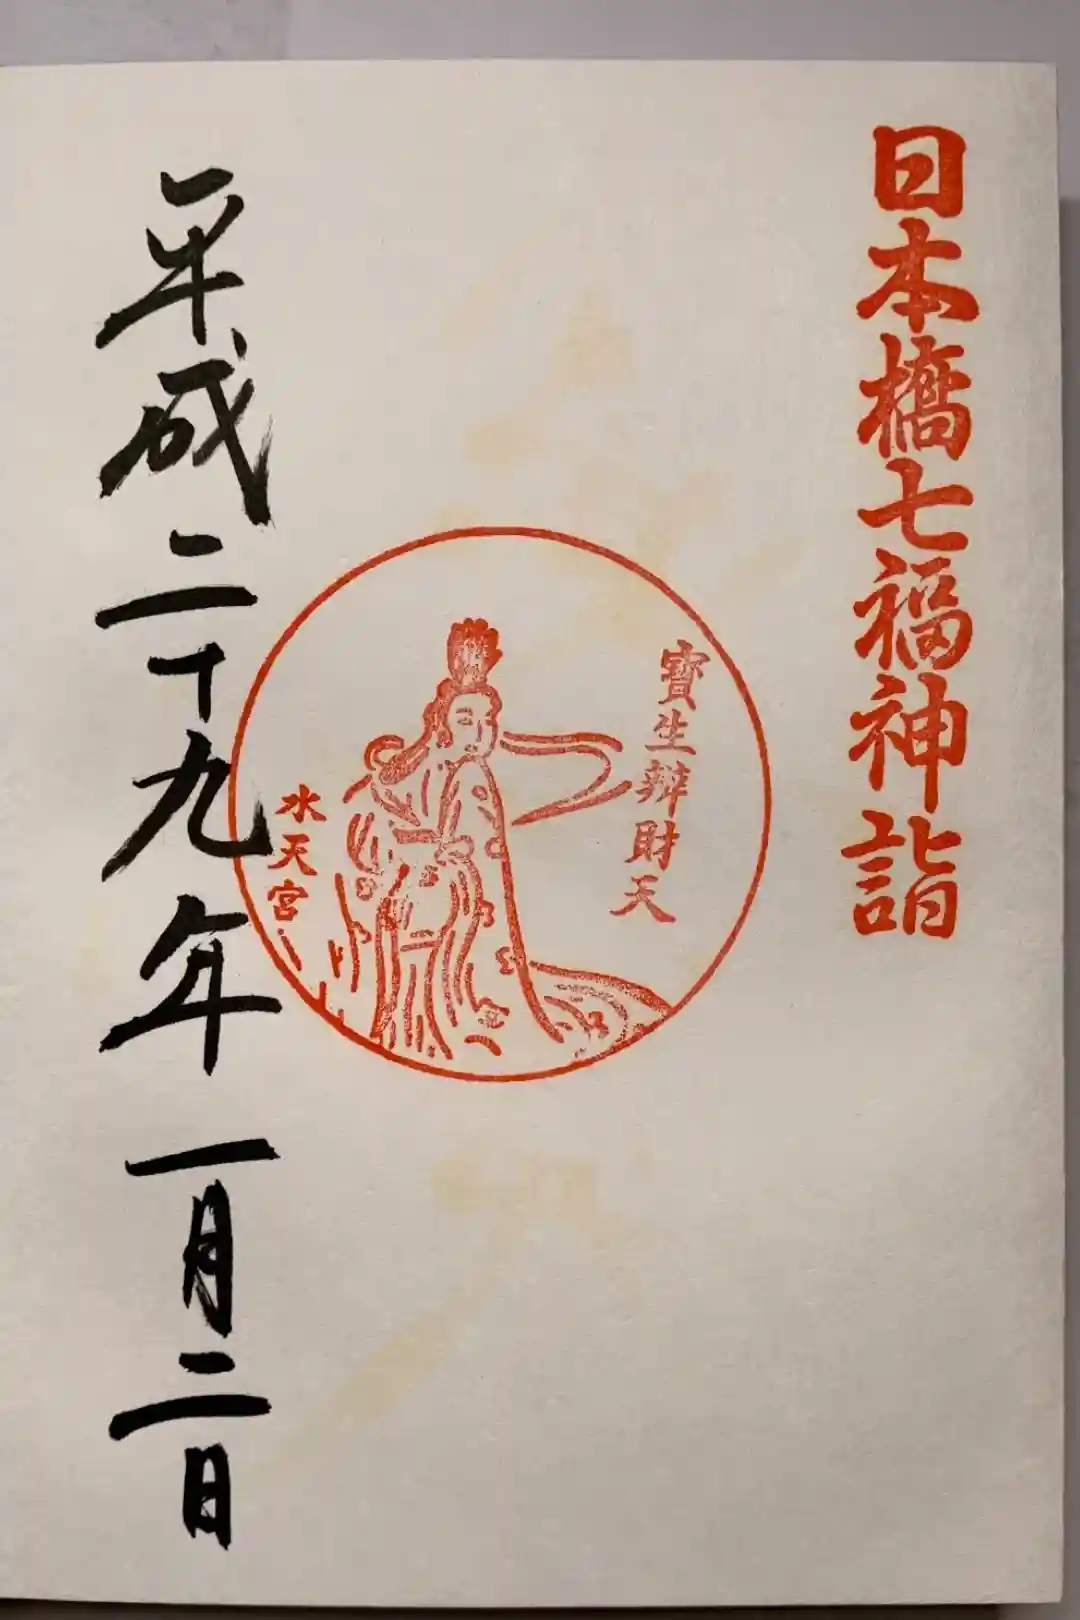 日本橋七福神詣
寶生辯財天
水天宮
平成二十九年一月二日